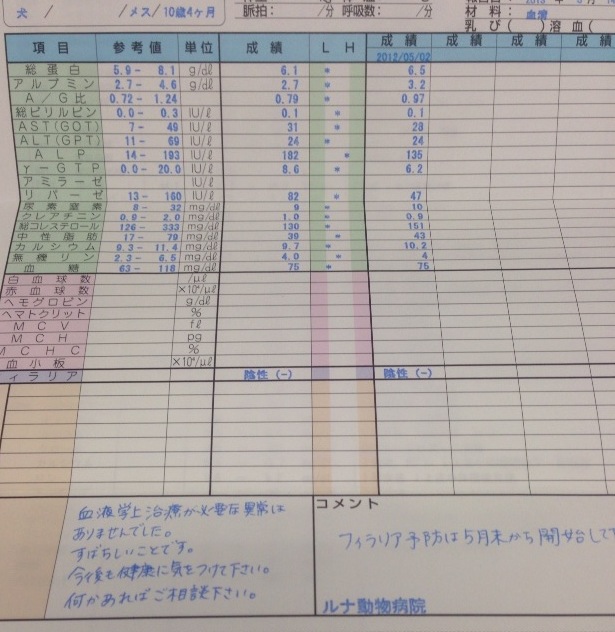 犬 / / メス / 10歳4ヶ月
脈拍： /分 呼吸数： /分
材 料： 血清
乳 び( ) 溶 血(
項 目 参 考 値 単 位 成 績 L H 成 績 成 績 成 績 成 績
2012/05/02
総 蛋 白 5.9 - 8.1 g/dl 6.1 * 6.5
ア ル ブ ミ ン 2.7 - 4.6 g/dl 2.7 * 3.2
A / G 比 0.72 - 1.24 0.79 * 0.97
総ビリルビン 0.0 - 0.3 IU/ℓ 0.1 * 0.1
AST(GOT) 7 - 49 IU/ℓ 31 * 28
ALT(GPT) 11 - 69 IU/ℓ 24 * 24
A L P 14 - 193 IU/ℓ 182 * 135
γ - G T P 0.0 - 20.0 IU/ℓ 8.6 * 6.2
ア ミ ラ ー ゼ IU/ℓ
リ パ ー ゼ 13 - 160 IU/ℓ 82 * 47
尿 素 窒 素 8 - 32 mg/dℓ 9 * 10
クレアチニン 0.9 - 2.0 mg/dℓ 1.0 * 0.9
総コレステロール 126 - 333 mg/dℓ 130 * 151
中 性 脂 肪 17 - 79 mg/dℓ 39 * 43
カ ル シ ウ ム 9.3 - 11.4 mg/dℓ 9.7 * 10.2
無 機 リ ン 2.3 - 6.5 mg/dℓ 4.0 * 4
血 糖 63 - 118 mg/dℓ 75 * 75
白 血 球 数 /μℓ
赤 血 球 数 ×10⁴/μℓ
ヘモグロビン g/dℓ
ヘマトクリット %
M C V fℓ
M C H pg
M C H C %
血 小 板 ×10⁴/μℓ
ィ ラ リ ア 陰性 (-) 陰性 (-)
血液学上治療が必要な異常は
ありませんでした。
すばらしいことです。
今後も健康に気をつけて下さい。
何かあればご相談下さい。
コメント
フィラリア予防は5月末から開始して
ルナ動物病院